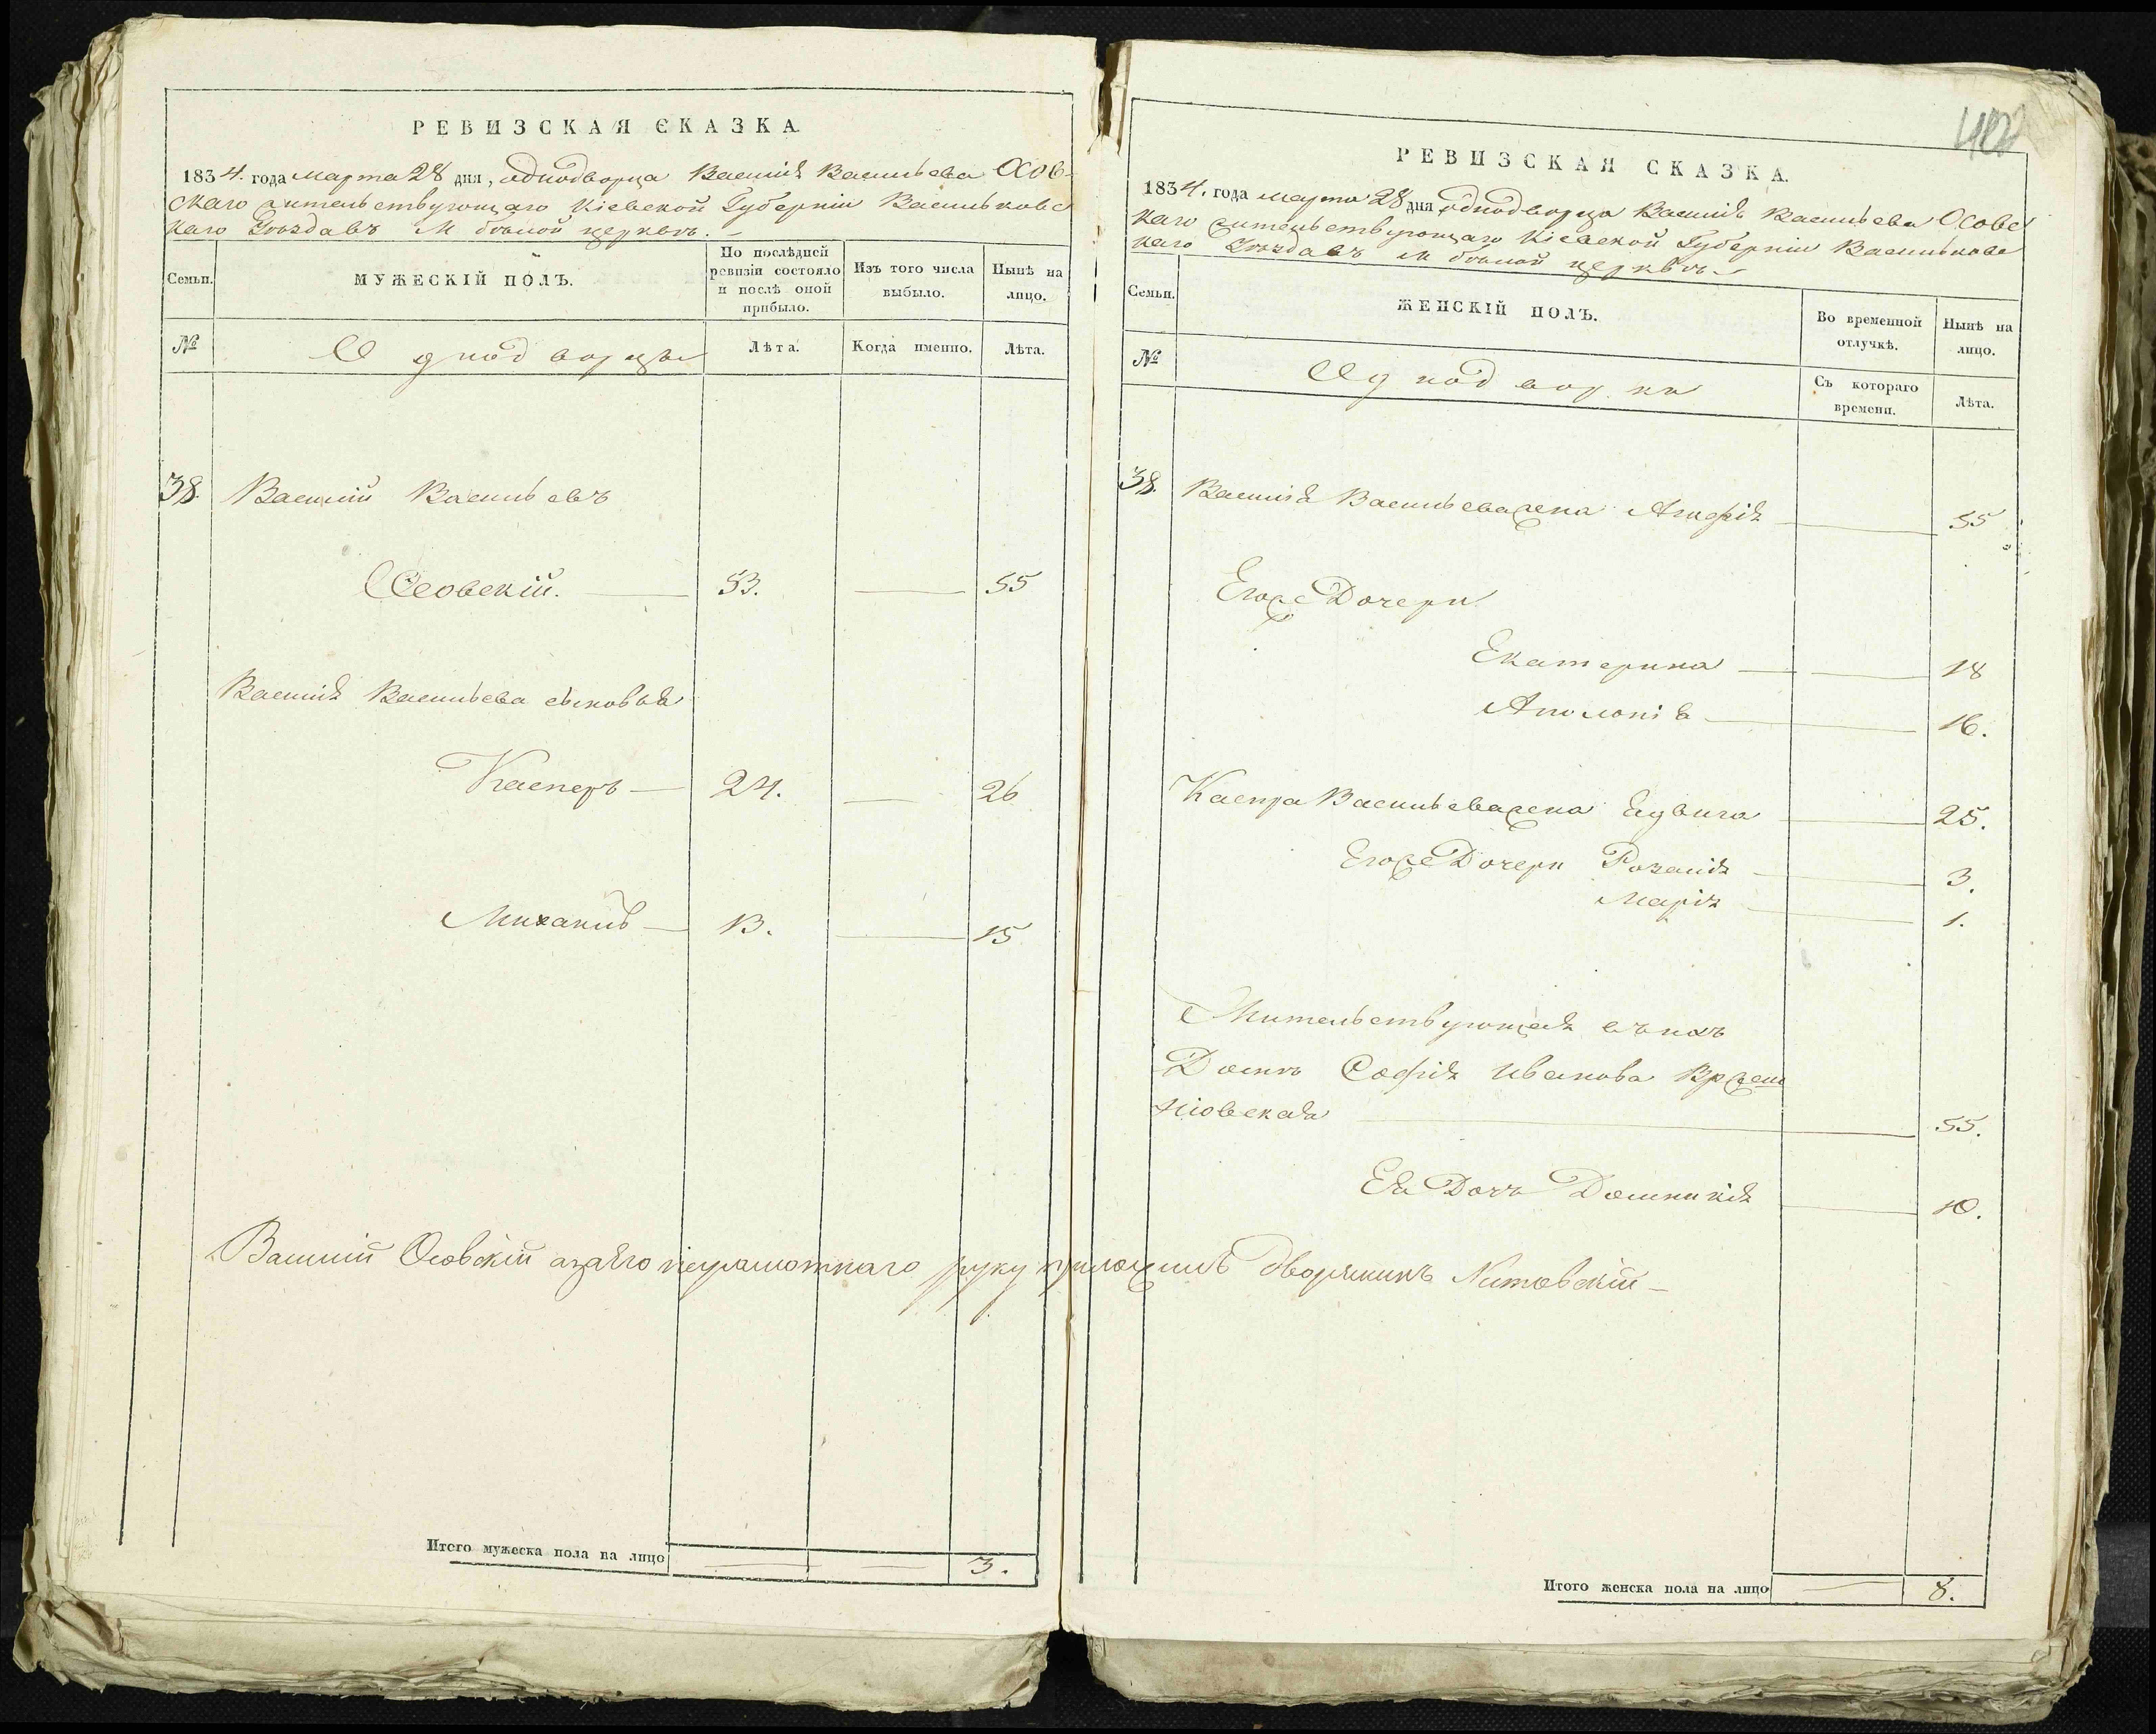 РЕВИЗСКАЯ СКАЗКА
1834. года марта 28 дня, однодворца Василія Васильева Осов-
скаго жительствующаго Кіевской Губерніи Васильковс
каго Уѣзда въ М бѣлой церквѣ.
Семьи.
МУЖЕСКІЙ ПОЛЪ.
По послѣдней
ревизіи состояло
и послѣ оной
прибыло.
Изъ того числа
выбыло.
Нынѣ на
лицо.
№
Однодворцы
Лѣта.
Когда именно.
Лѣта.
38. Василий Васильевъ
Осовскій. 53. 55
Василія Васильева сыновья
Касперъ 24. 26
Михаилъ 13. 15
Василій Осовскій а за его неграмотнаго руку приложилъ дворянинъ Китовскій
Итого мужеска пола на лицо 3.
РЕВИЗСКАЯ СКАЗКА.
1834. года марта 28 дня однодворца Василія Васильева Осовс
каго жительствующаго Кіевской Губерніи Васильковс
каго Уѣзда въ М бѣлой церквѣ
Семьи.
ЖЕНСКІЙ ПОЛЪ.
Во временной
отлучкѣ.
Нынѣ на
лицо.
№
Однодворки
Съ котораго
времени.
Лѣта.
38. Василія Васильева жена 55
Егоже Дочери
Екатерина 18
Аполонія 16.
Каспра Васильева жена Едвига 25.
Егоже Дочери Розалія 3.
Марія 1.
Жительствующая въ ихъ
Домѣ Софія Иванова
55.
Ея Дочь Доминикія 10.
Итого женска пола на лицо 8.